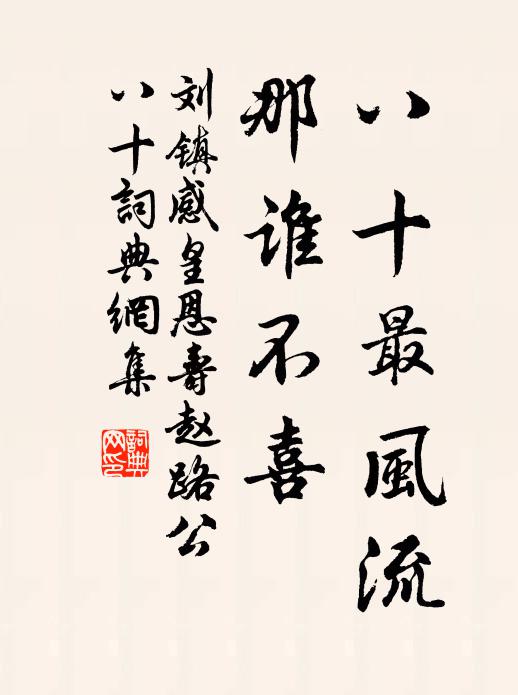 八十最風流
那谁不喜
刘镇感皇恩壽赵路公
八十詞典網集
詞典
网印